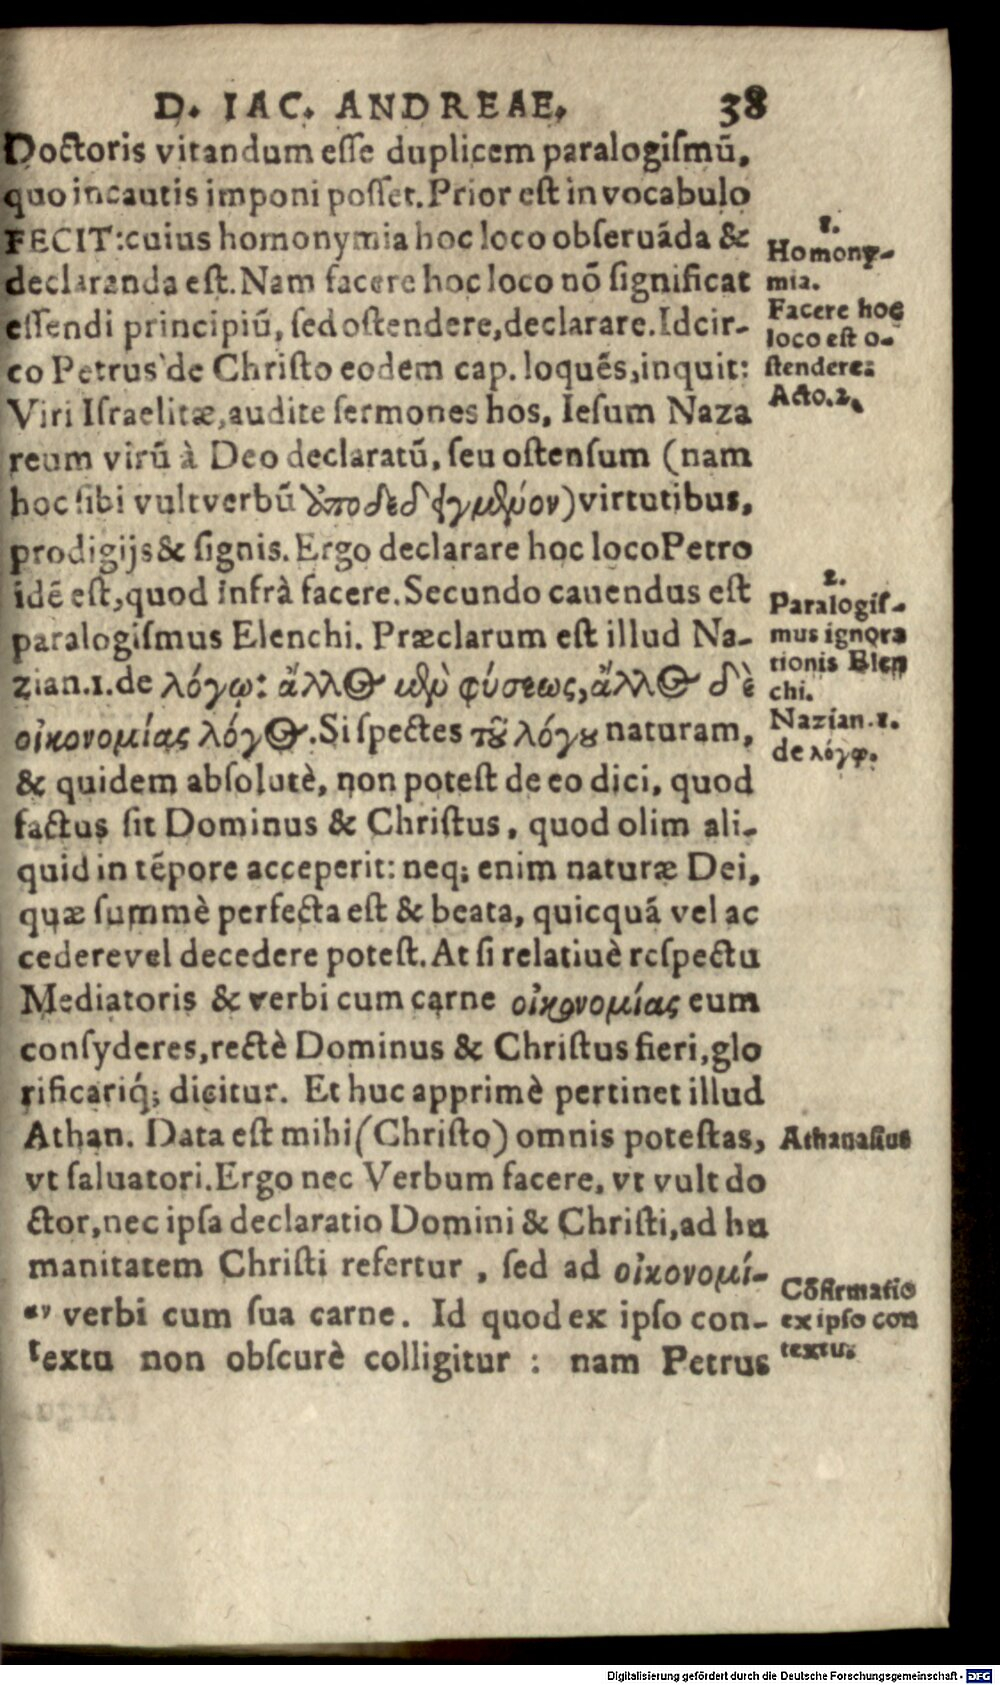 D. IAC. ANDREAE. 38
Doctoris vitandum esse duplicem paralogismū,
quo incautis imponi posset. Prior est in vocabulo
FECIT: cuius homonymia hoc loco obseruāda &
declaranda est. Nam facere hoc loco nō significat
essendi principiū, sed ostendere, declarare. Idcir-
co Petrus de Christo eodem cap. loquēs, inquit:
Viri Israelitæ, audite sermones hos, Iesum Naza
reum virū à Deo declaratū, seu ostensum (nam
hoc sibi vult verbū ὑποδεδειγμένον) virtutibus,
prodigijs & signis. Ergo declarare hoc loco Petro
idē est, quod infrà facere. Secundo cauendus est
paralogismus Elenchi. Præclarum est illud Na-
zian. 1. de λόγῳ: ἄλλος μὲν φύσεως, ἄλλος δὲ
οἰκονομίας λόγος. Si spectes τοῦ λόγου naturam,
& quidem absolutè, non potest de eo dici, quod
factus sit Dominus & Christus, quod olim ali-
quid in tēpore acceperit: neq; enim naturæ Dei,
quæ summè perfecta est & beata, quicquā vel ac
cedere vel decedere potest. At si relatiuè respectu
Mediatoris & verbi cum carne οἰκονομίας eum
consyderes, rectè Dominus & Christus fieri, glo
rificariq́; dicitur. Et huc apprimè pertinet illud
Athan. Data est mihi (Christo) omnis potestas,
vt saluatori. Ergo nec Verbum facere, vt vult do
ctor, nec ipsa declaratio Domini & Christi, ad hu
manitatem Christi refertur, sed ad οἰκονομί-
αν verbi cum sua carne. Id quod ex ipso con-
textu non obscurè colligitur : nam Petrus
1.
Homony-
mia.
Facere hoc
loco est o-
stendere:
Acto. 2.
2.
Paralogis-
mus ignora
tionis Elen
chi.
Nazian. 1.
de λόγῳ.
Athanasius
Cōfirmatio
ex ipso con
textu.
Digitalisierung gefördert durch die Deutsche Forschungsgemeinschaft - DFG